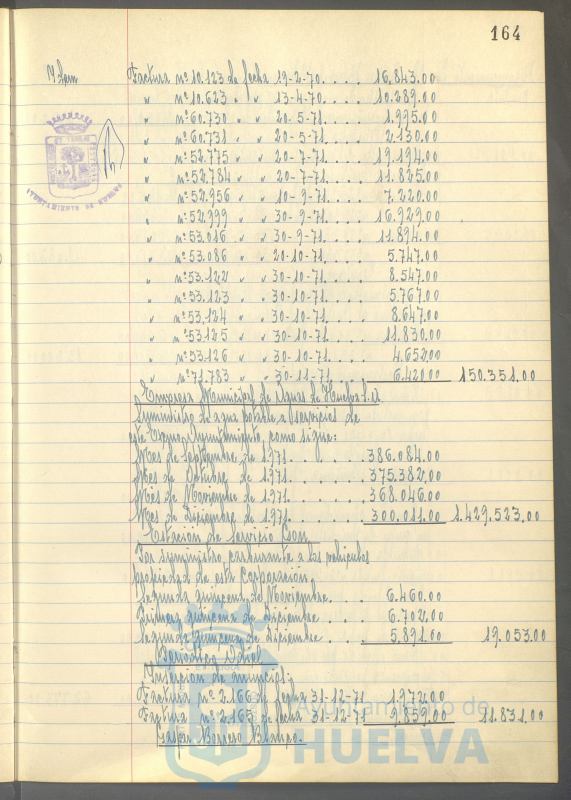 164
Factura nº 10.123 de fecha 19-2-70.... 16.843.00
" nº 10.623 " " 13-4-70.... 10.289.00
" nº 60.730 " " 20-5-71.... 1.995.00
" nº 60.731 " " 20-5-71.... 2.130.00
" nº 52.775 " " 20-7-71.... 19.194.00
" nº 52.784 " " 20-7-71.... 11.825.00
" nº 52.956 " " 10-9-71.... 7.220.00
" nº 52.999 " " 30-9-71.... 16.929.00
" nº 53.016 " " 30-9-71.... 11.894.00
" nº 53.086 " " 20-10-71.... 5.747.00
" nº 53.122 " " 30-10-71.... 8.547.00
" nº 53.123 " " 30-10-71.... 5.767.00
" nº 53.124 " " 30-10-71.... 8.647.00
" nº 53.125 " " 30-10-71.... 11.830.00
" nº 53.126 " " 30-10-71.... 4.652.00
" nº 71.783 " " 30-11-71. 6.420.00 150.351.00
Empresa Municipal de Aguas de Huelva S.A
Suministro de agua potable a servicios de
este Excmo. Ayuntamiento, como sigue:
Mes de Septiembre de 1.971. 386.084.00
Mes de Octubre de 1.971. 375.382.00
Mes de Noviembre de 1.971. 368.046.00
Mes de Diciembre de 1.971. 300.011.00 1.429.523.00
Estación de Servicio
Por suministro carburante a los vehiculos
propiedad de esta Corporación
Segunda quincena de Noviembre. 6.460.00
Primera quincena de Diciembre 6.702.00
Segunda quincena de Diciembre. 5.891.00 19.053.00
Periodico Odiel
Insercion de anuncios:
Factura nº 2.166 de fecha 31-12-71 1.972.00
Factura nº 2.165 de fecha 31-12-71 9.859.00 11.831.00
Borrero
AYUNTAMIENTO DE HUELVA
Ayuntamiento de
HUELVA